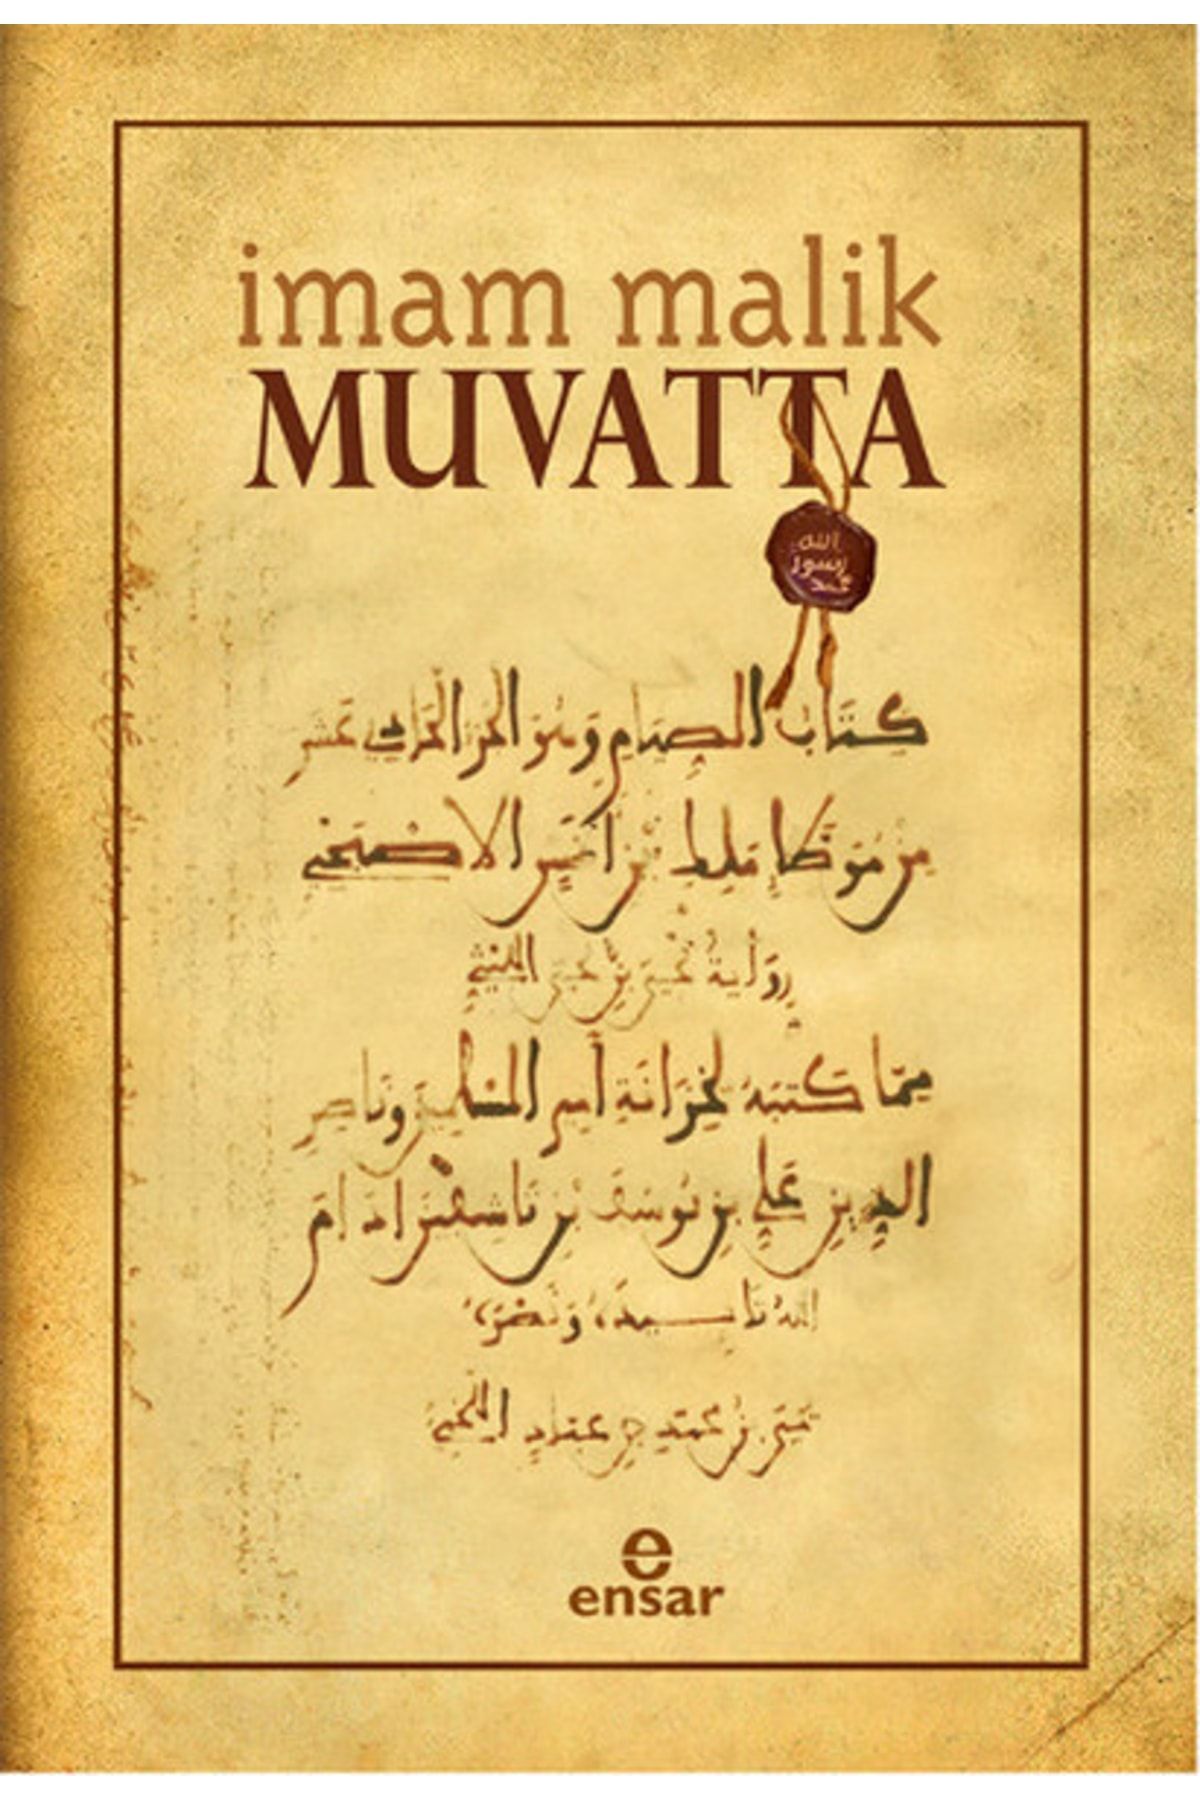 imam malik
MUVATTA
الله
رسول
محمد
كتاب الصيام وهو الجزء الحادي عشر
من موطإ مالك بن أنس الأصبحي
رواية يحيى بن يحيى الليثي
مما كتبه لخزانة أمير المسلمين وناصر
الدين علي بن يوسف بن تاشفين أدام
الله تأييده ونصره
يحيى بن محمد بن عباد اللخمي
ensar